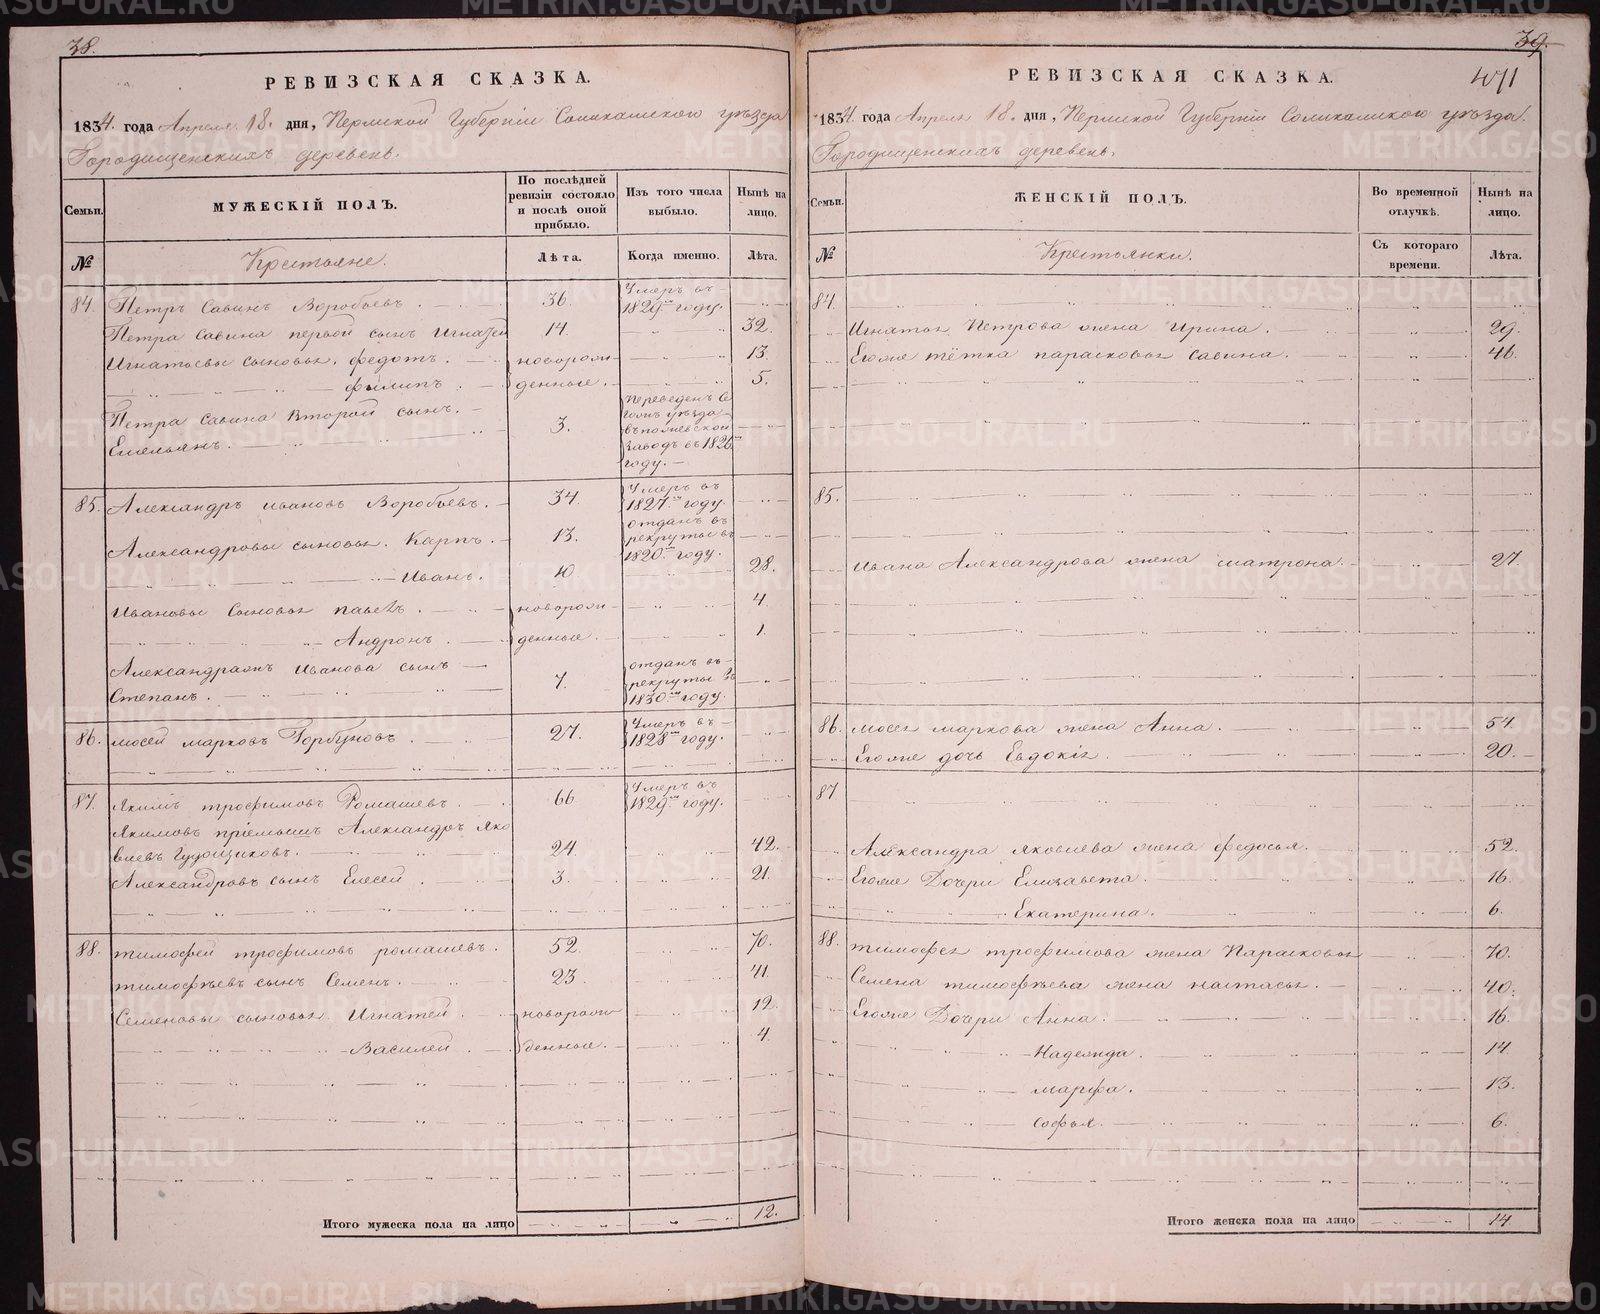 38.
РЕВИЗСКАЯ СКАЗКА.
1834. года Апреля 18. дня, Пермской Губерніи Соликамского уѣзда
Городищенскихъ деревень.
Семьи.
МУЖЕСКІЙ ПОЛЪ.
По послѣдней ревизіи состояло и послѣ оной прибыло.
Изъ того числа выбыло.
Нынѣ на лицо.
№
Крестьяне.
Лѣта.
Когда именно.
Лѣта.
84. Петръ Савинъ Воробьевъ. 36. Умеръ въ 1829м году.
Петра Савина первой сынъ Игнатей 14. 32.
Игнатьевы сыновья. федотъ. новорож- 13.
филипъ. денные. 5.
Петра Савина Второй сынъ.
Емельянъ. 3. Переведенъ
уѣзда
завод въ 1826м
году.
85. Александръ ивановъ Воробьевъ. 34. Умеръ въ 1827м году.
Александровы сыновья. Карпъ. 13. отданъ въ рекруты въ 1820м году.
Иванъ. 10 28.
Ивановы Сыновья павелъ. новорож- 4.
Андронъ. денные. 1.
Иванова сынъ
Степанъ. 7. отданъ въ рекруты въ 1830м году.
86. мосей марковъ Горбуновъ. 27. Умеръ въ 1828м году.
87. Якимъ трофимовъ Ромашевъ. 66 Умеръ въ 1829м году.
Якимовъ пріемышъ Александръ Яко
влевъ 24. 42.
Александровъ сынъ Елесей. 3. 21.
88. тимофей трофимовъ ромашевъ. 52. 70.
тимофѣевъ сынъ Семенъ. 23. 41.
Семеновы сыновья. Игнатей. новорож- 12.
Василей денные. 4.
Итого мужеска пола на лицо 12.
39.
471
РЕВИЗСКАЯ СКАЗКА.
1834. года Апреля 18. дня, Пермской Губерніи Соликамского уѣзда.
Городищенскихъ деревень.
Семьи.
ЖЕНСКІЙ ПОЛЪ.
Во временной отлучкѣ.
Нынѣ на лицо.
№
Крестьянки.
Съ котораго времени.
Лѣта.
84.
Игнатья Петрова жена Ирина. 29.
Егоже тётка парасковья савина. 46.
85.
Ивана Александрова жена матрона. 27.
86. мосея маркова жена Анна. 54.
Егоже дочь Евдокія. 20.
87
Александра яковлева жена федосья. 52.
Егоже Дочери Елизавета. 16.
Екатерина. 6.
88. тимофея трофимова жена Парасковья 70.
Семена тимофѣева жена настасья. 40.
Егоже Дочери Анна. 16.
Надежда. 14
марфа. 13.
софья. 6.
Итого женска пола на лицо 14
METRIKI.GASO-URAL.RU